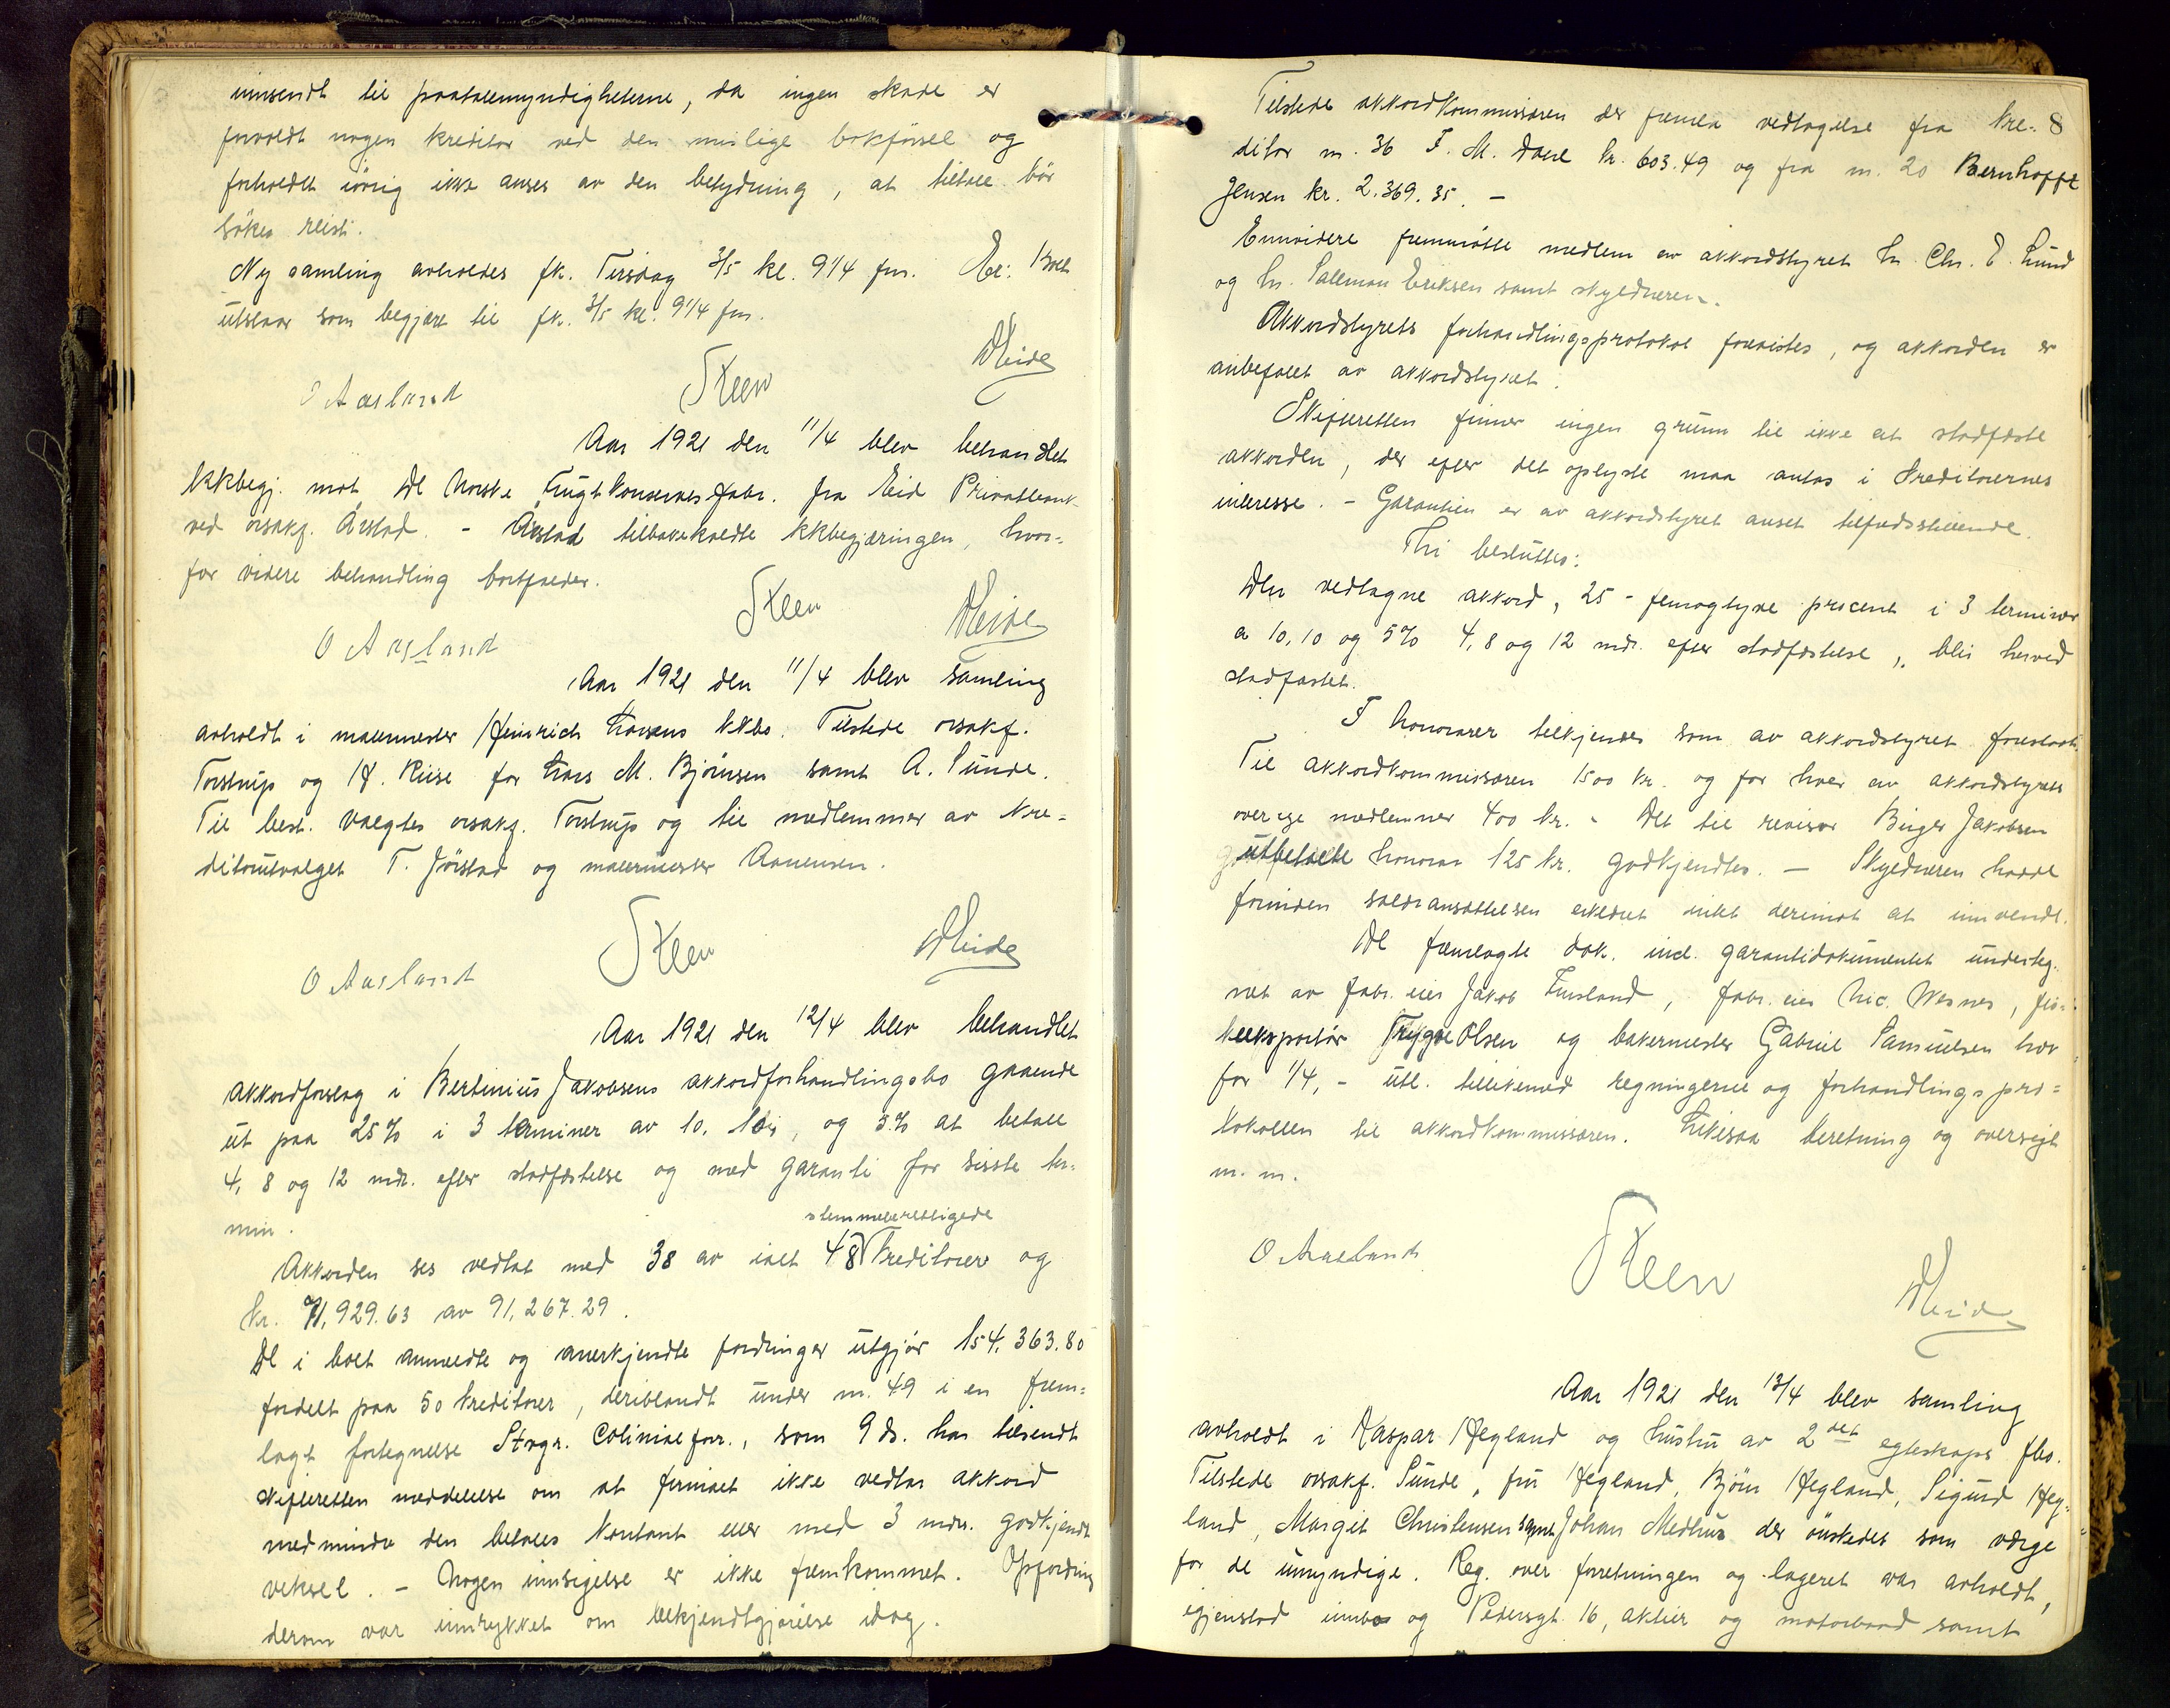 innsendt til paatalemyndigheterne, da ingen skade er
forvoldt nogen kreditor ved den mislige bokførsel og
forholdet iørig ikke anses av den betydning, at tiltale bør
søkes reist.
Ny samling avholdes fk. Tirsdag 3/5 kl. 9 1/4 fm.
utstaar som begjært til fk. 3/5 kl. 9 1/4 fm.
O Aasland Steen Meide
Aar 1921 den 11/4 blev behandlet
kkbegj. mot De Norske Frugtkonserves fabr. fra Eid Privatbank
ved orsakf. Årstad. - Årstad tilbakekaldte kkbegjæringen, hvor=
for videre behandling bortfalder.
O Aasland Steen Meide
Aar 1921 den 11/4 blev samling
avholdt i malermester Heinrich Larsens kkbo. Tilstede orsakf.
Torstrup og H. Riise for Lars M. Bjørnsen samt A. Sunde.
Til best. valgtes orsakf. Torstrup og til medlemmer av kre=
ditorutvalget T. Jørstad og malermester Aanensen.
O Aasland Steen Meide
Aar 1921 den 12/4 blev behandlet
akkordforslag i Bertinius Jakobsens akkordforhandlingsbo gaaende
ut paa 25% i 3 terminer av 10, 10, og 5% at betale
4, 8 og 12 mdr. efter stadfæstelse og med garanti for sisste ter=
min.
stemmeberettigede
Akkorden ses vedtat med 38 av ialt 48 kreditorer og
kr. 71,929.63 av 91,267.29.
De i boet anmeldte og anerkjendte fordringer utgjør 154.363.80
fordelt paa 50 kreditorer, deriblandt under nr. 49 i en frem=
lagt fortegnelse Stvgr. Colonialforr., som 9 ds. har tilsendt
skifteretten meddelelse om at firmaet ikke vedtar akkord
medmindre den betales kontant eller med 3 mdrs. godkjendt
veksel. - Nogen innsigelse er ikke fremkommet. Opfordring
derom var innrykket om bekjendtgjørelse idag.
8
Tilstede akkordkommissæren der fremla vedtagelse fra kre=
ditor nr. 36 I. M. Dahl kr. 603.49 og fra nr. 20 Bernhofft
Jensen kr. 2.369.35. -
Ennvidere fremmøtte medlem av akkordstyret hr. Chr. E. Lund
og hr. Salemon Eriksen samt skyldneren.
Akkordstyrets forhandlingsprotokol forevistes, og akkorden er
anbefalet av akkordstyret.
Skifteretten finner ingen grunn til ikke at stadfæste
akkorden, der efter det oplyste maa antas i kreditorernes
interesse. - Garantien er av akkordstyret anset tilfredsstillende.
Thi besluttes:
Den vedtagne akkord, 25 - femogtyve procent i 3 terminer
a 10, 10 og 5% 4, 8 og 12 mdr. efter stadfæstelse, blir herved
stadfæstet.
I honorarer tilkjendes som av akkordstyret foreslaat.
Til akkordkommissæren 1500 kr. og for hver av akkordstyrets
øvrige medlemmer 400 kr. - Det til revisor Birger Jakobsen
utbetalte honorar 125 kr. godkjendtes. - Skyldneren hadde
forinden salæransættelsen erklæret intet derimot at innvende.
De fremlagte dok. incl. garantidokumentet underteg=
net av fabr. eier Jakob Fusland, fabr. eier Nic. Wesnes, fis=
keeksportør Trygve Olsen og bakermester Gabriel Samuelsen hver
for 1/4, - utl. tillikemed regningerne og forhandlingspro=
tokollen til akkordkommissæren. Likesaa beretning og oversigt
m. m.
O Aasland Steen Meide
Aar 1921 den 13/4 blev samling
avholdt i Kaspar Hegland og hustru av 2det egteskaps fbo.
Tilstede orsakf. Sunde, fru Hegland, Bjørn Hegland, Sigurd Heg=
land, Margit Christensen samt Johan Medhus der ønskedes som værge
for de umyndige. Reg. over forretningen og lageret var avholdt,
igjenstod innbo og Pedersgt. 16, aktier og motorbaad samt